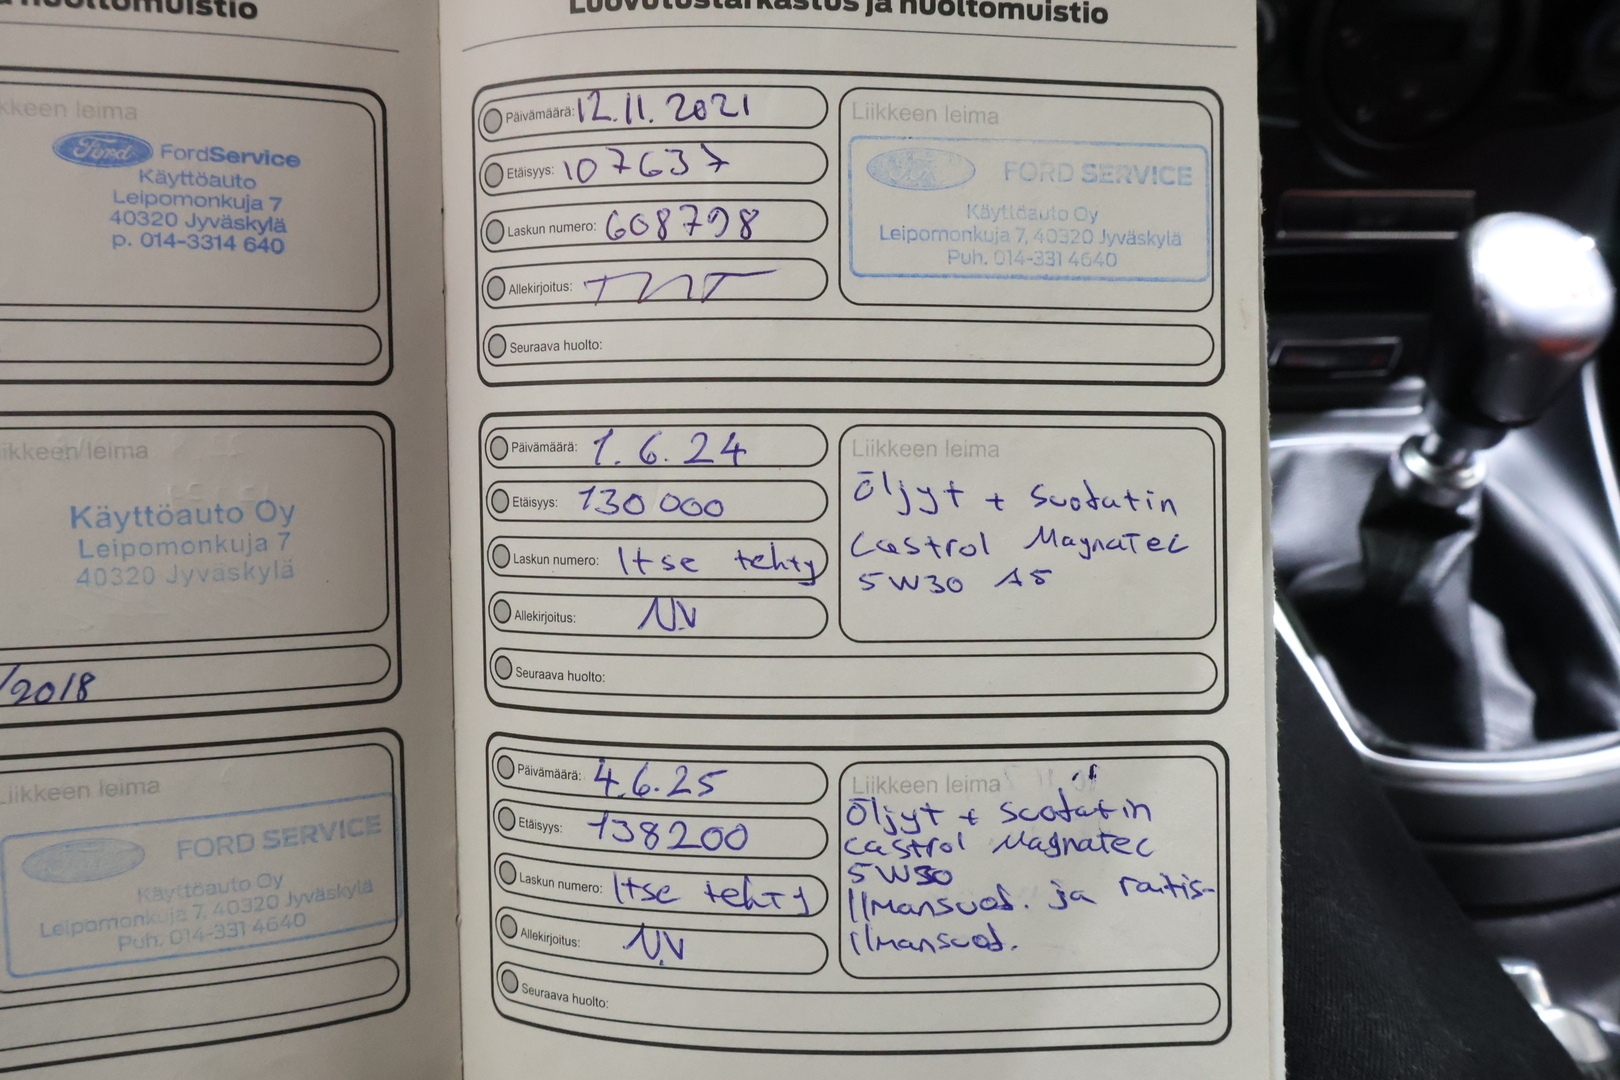 huoltomuistio
Liikkeen leima
Ford FordService
Käyttöauto
Leipomonkuja 7
40320 Jyväskylä
p. 014-3314 640
ikkeen leima
Käyttöauto Oy
Leipomonkuja 7
40320 Jyväskylä
/2018
Liikkeen leima
FORD SERVICE
Käyttöauto Oy
Leipomonkuja 7, 40320 Jyväskylä
Puh. 014-331 4640
Luovutustarkastus ja huoltomuistio
Päivämäärä: 12.11.2021
Etäisyys: 107637
Laskun numero: 608798
Allekirjoitus:
Seuraava huolto:
Liikkeen leima
FORD SERVICE
Käyttöauto Oy
Leipomonkuja 7, 40320 Jyväskylä
Puh. 014-331 4640
Päivämäärä: 1.6.24
Etäisyys: 130 000
Laskun numero: Itse tehty
Allekirjoitus: NV
Seuraava huolto:
Liikkeen leima
Öljyt + Suodatin
Castrol Magnatec
5W30 A5
Päivämäärä: 4.6.25
Etäisyys: 138200
Laskun numero: Itse tehty
Allekirjoitus: N.V
Seuraava huolto:
Liikkeen leima
Öljyt + Suodatin
Castrol Magnatec
5W30
Ilmansuod. ja raitis-
ilmansuod.